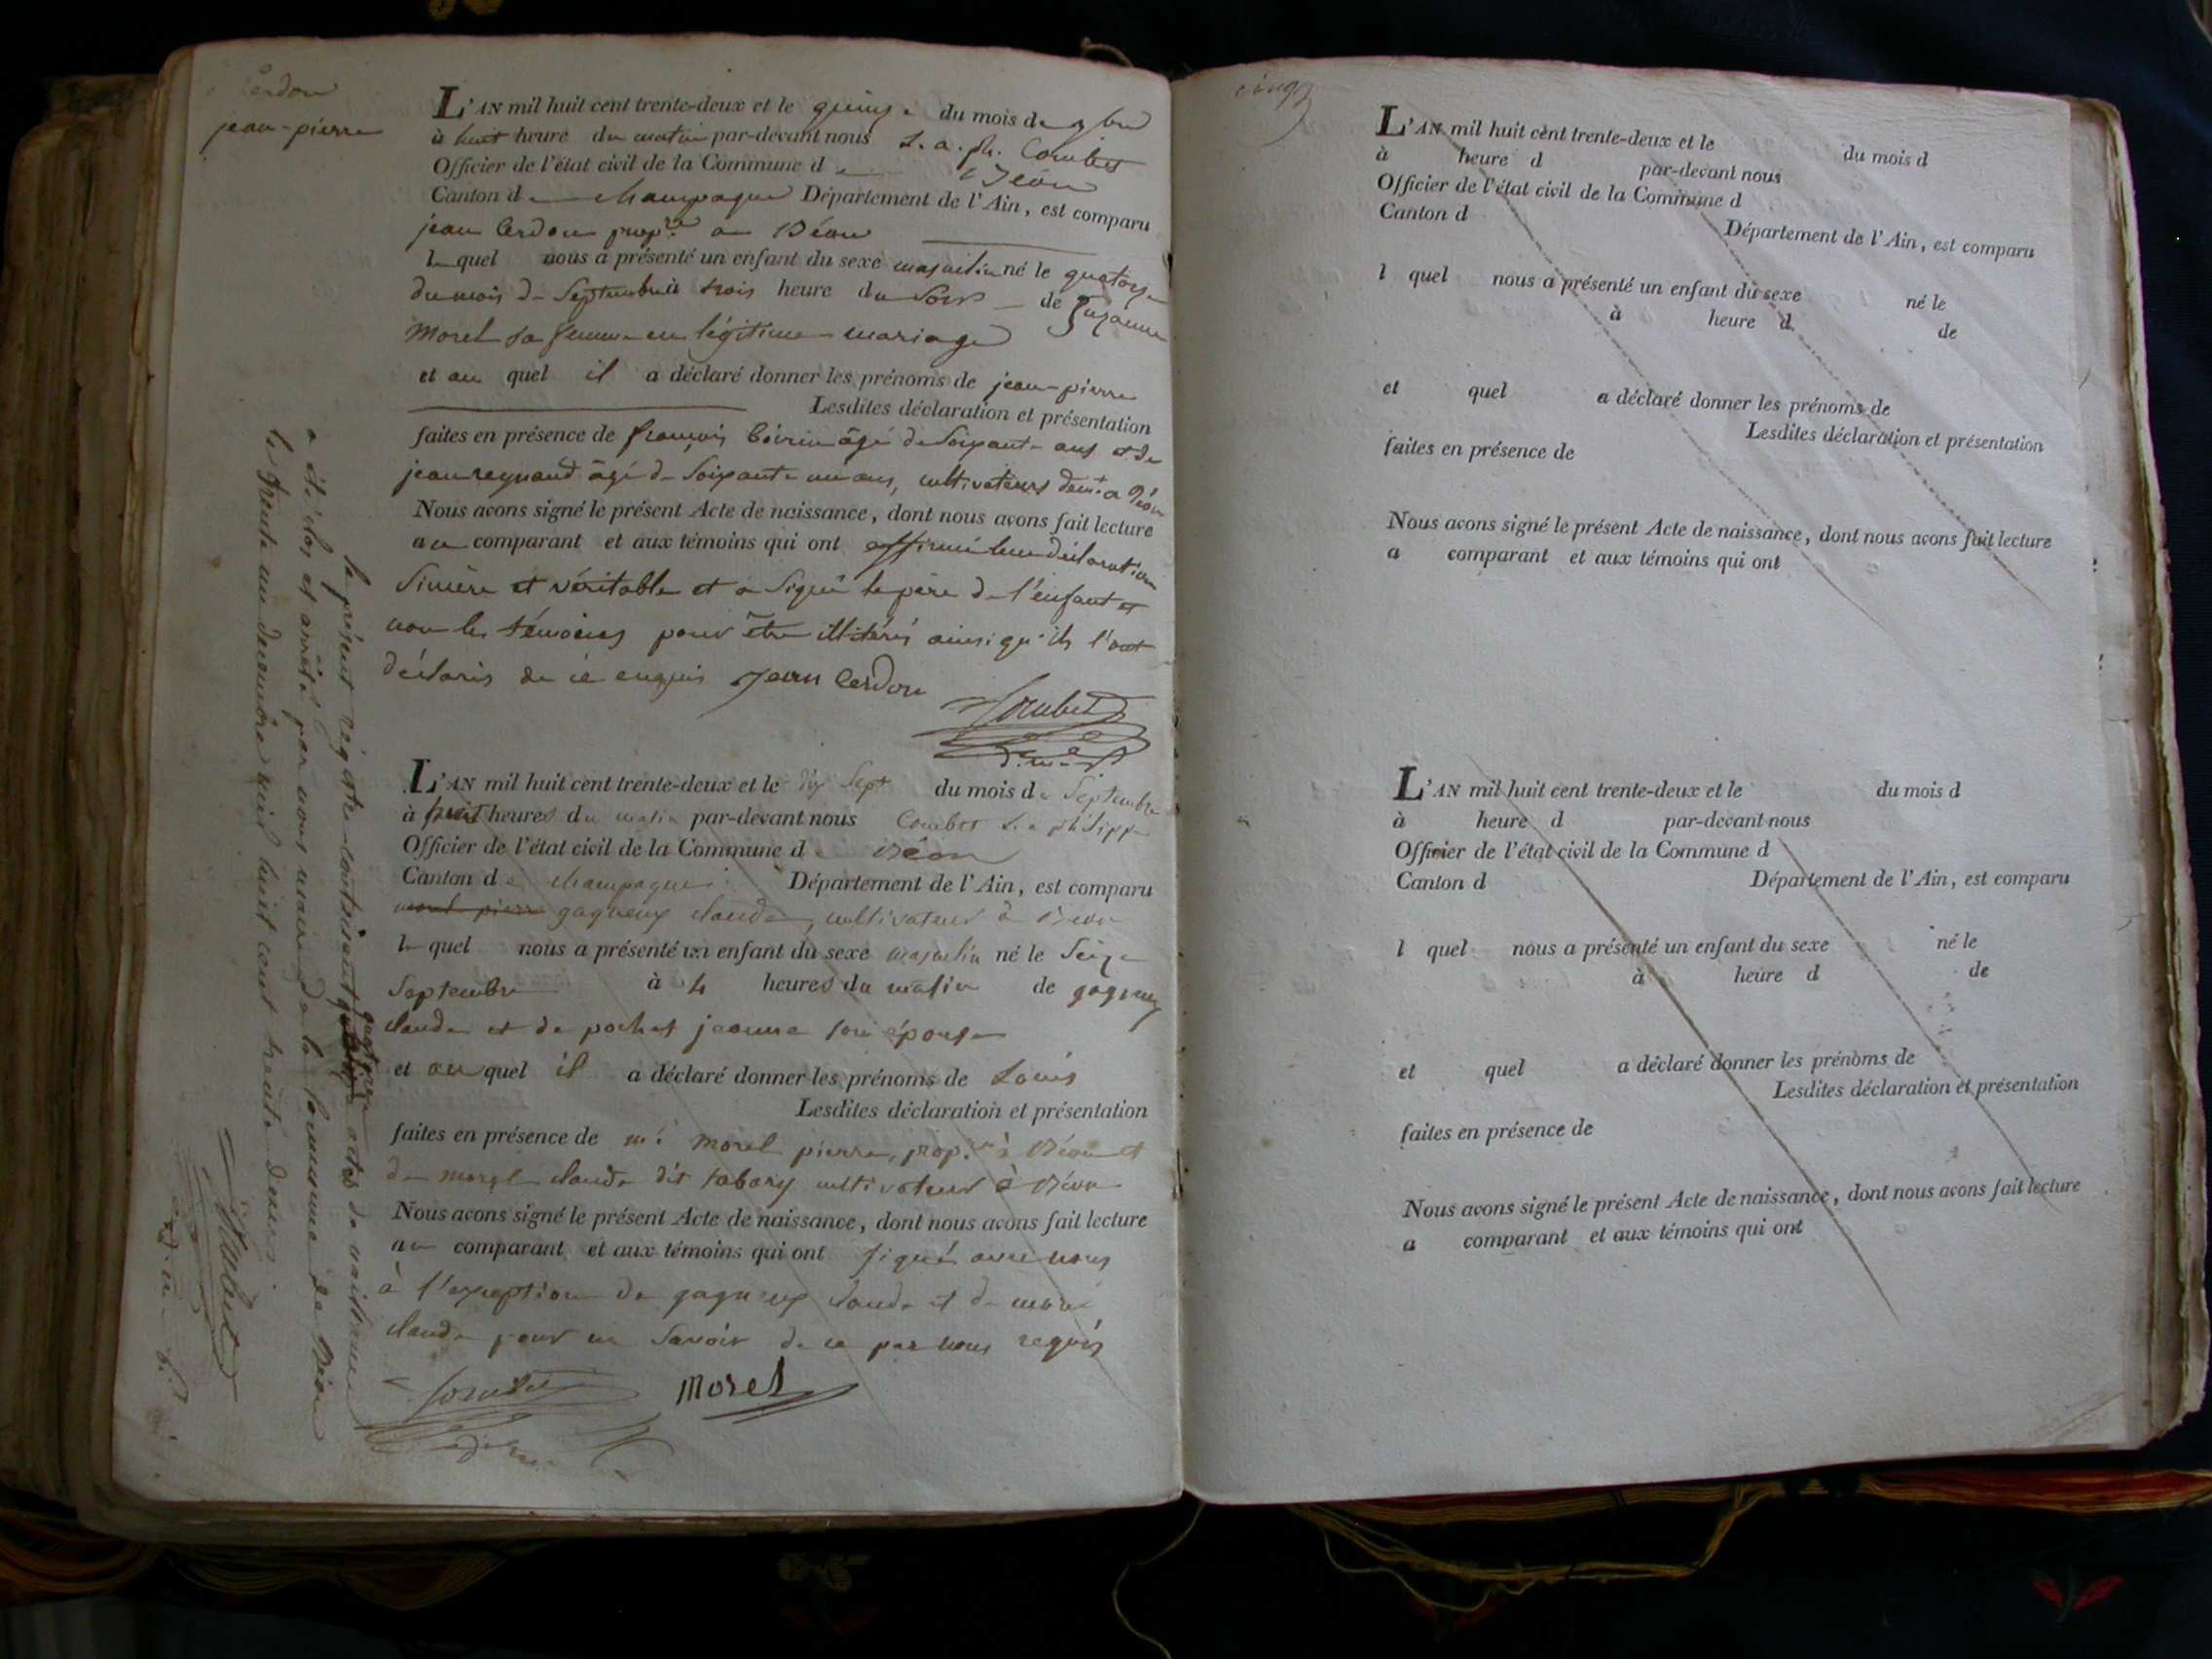 Cerdon
jean-pierre
L'AN mil huit cent trente-deux et le quinze du mois de 7bre
à huit heure du matin par-devant nous L. a. ph. Combet
Officier de l'état civil de la Commune de Béon
Canton de champagne Département de l'Ain, est comparu
jean Cerdon propre a Béon
le quel nous a présenté un enfant du sexe masculin né le quatorze
du mois de Septembre à trois heure du Soir de Suzanne
Morel sa femme en légitime mariage
et au quel il a déclaré donner les prénoms de jean-pierre
Lesdites déclaration et présentation
faites en présence de françois Boivin âgé de Soixante ans et de
jean reynaud âgé de Soixante un ans, cultivateurs demt a Béon
Nous avons signé le présent Acte de naissance, dont nous avons fait lecture
au comparant et aux témoins qui ont affirmé leur déclaration
Sincère et véritable et a Signé le père de l'enfant et
non les témoins pour être illitérés ainsi qu'ils l'ont
déclaris de ce enquis Jean Cerdon
Combet
L'AN mil huit cent trente-deux et le dix Sept du mois de Septembre
à huit heures du matin par-devant nous Combet L. a philippe
Officier de l'état civil de la Commune de Béon
Canton de champagne Département de l'Ain, est comparu
morel pierre gagneux claude, cultivateur à Béon
le quel nous a présenté un enfant du sexe masculin né le Seize
Septembre à 4 heures du matin de gagneux
claude et de pochet jeanne son épouse
et au quel il a déclaré donner les prénoms de Louis
Lesdites déclaration et présentation
faites en présence de mr morel pierre, propre à Béon et
de morel claude dit tabary cultivateur à Béon
Nous avons signé le présent Acte de naissance, dont nous avons fait lecture
au comparant et aux témoins qui ont signé avec nous
à l'exception de gagneux claude et de morel
claude pour ne Savoir de ce par nous requis
Combet Morel
le présent régistre contenant quatorze actes de naissance
a été clos et arrêté par nous maire de la commune de Béon
le trente un decembre mil huit cent trente deux
Combet
cinq
L'AN mil huit cent trente-deux et le du mois d
à heure d par-devant nous
Officier de l'état civil de la Commune d
Canton d Département de l'Ain, est comparu
l quel nous a présenté un enfant du sexe né le
à heure d de
et quel a déclaré donner les prénoms de
Lesdites déclaration et présentation
faites en présence de
Nous avons signé le présent Acte de naissance, dont nous avons fait lecture
a comparant et aux témoins qui ont
L'AN mil huit cent trente-deux et le du mois d
à heure d par-devant nous
Officier de l'état civil de la Commune d
Canton d Département de l'Ain, est comparu
l quel nous a présenté un enfant du sexe né le
à heure d de
et quel a déclaré donner les prénoms de
Lesdites déclaration et présentation
faites en présence de
Nous avons signé le présent Acte de naissance, dont nous avons fait lecture
a comparant et aux témoins qui ont